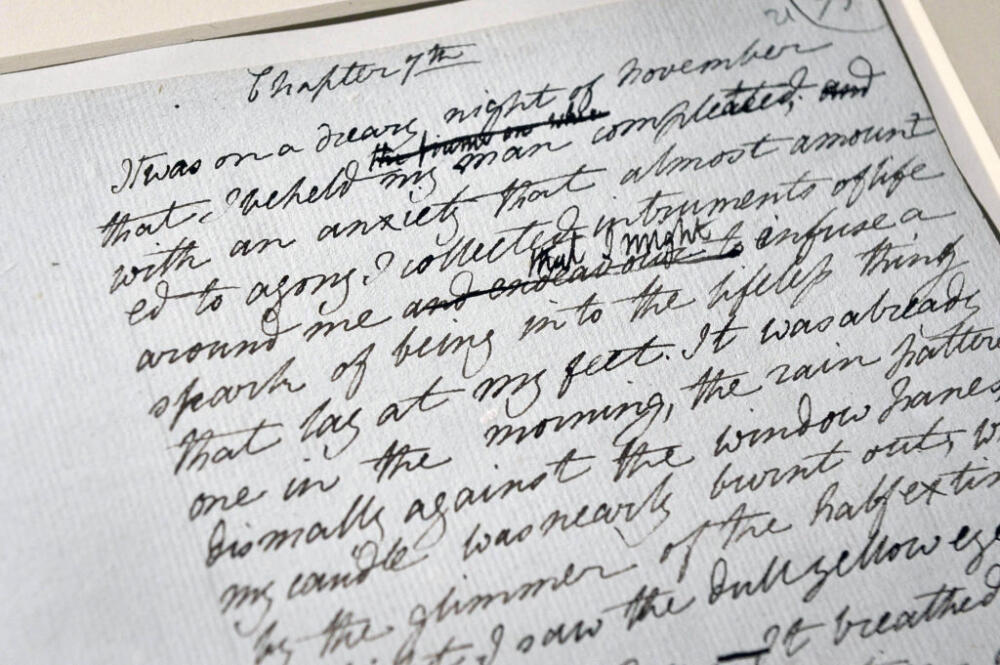 Chapter 7th
It was on a dreary night of november
the frame on
that I beheld my man compleated, and
with an anxiety that almost amount
ed to agony. I collected instruments of life
that I might
around me and endeavour to infuse a
spark of being into the lifeless thing
that lay at my feet. It was already
one in the morning, the rain pattere
dismally against the window panes
my candle was nearly burnt out, w
by the glimmer of the half extin
I saw the dull yellow eye
It breathed